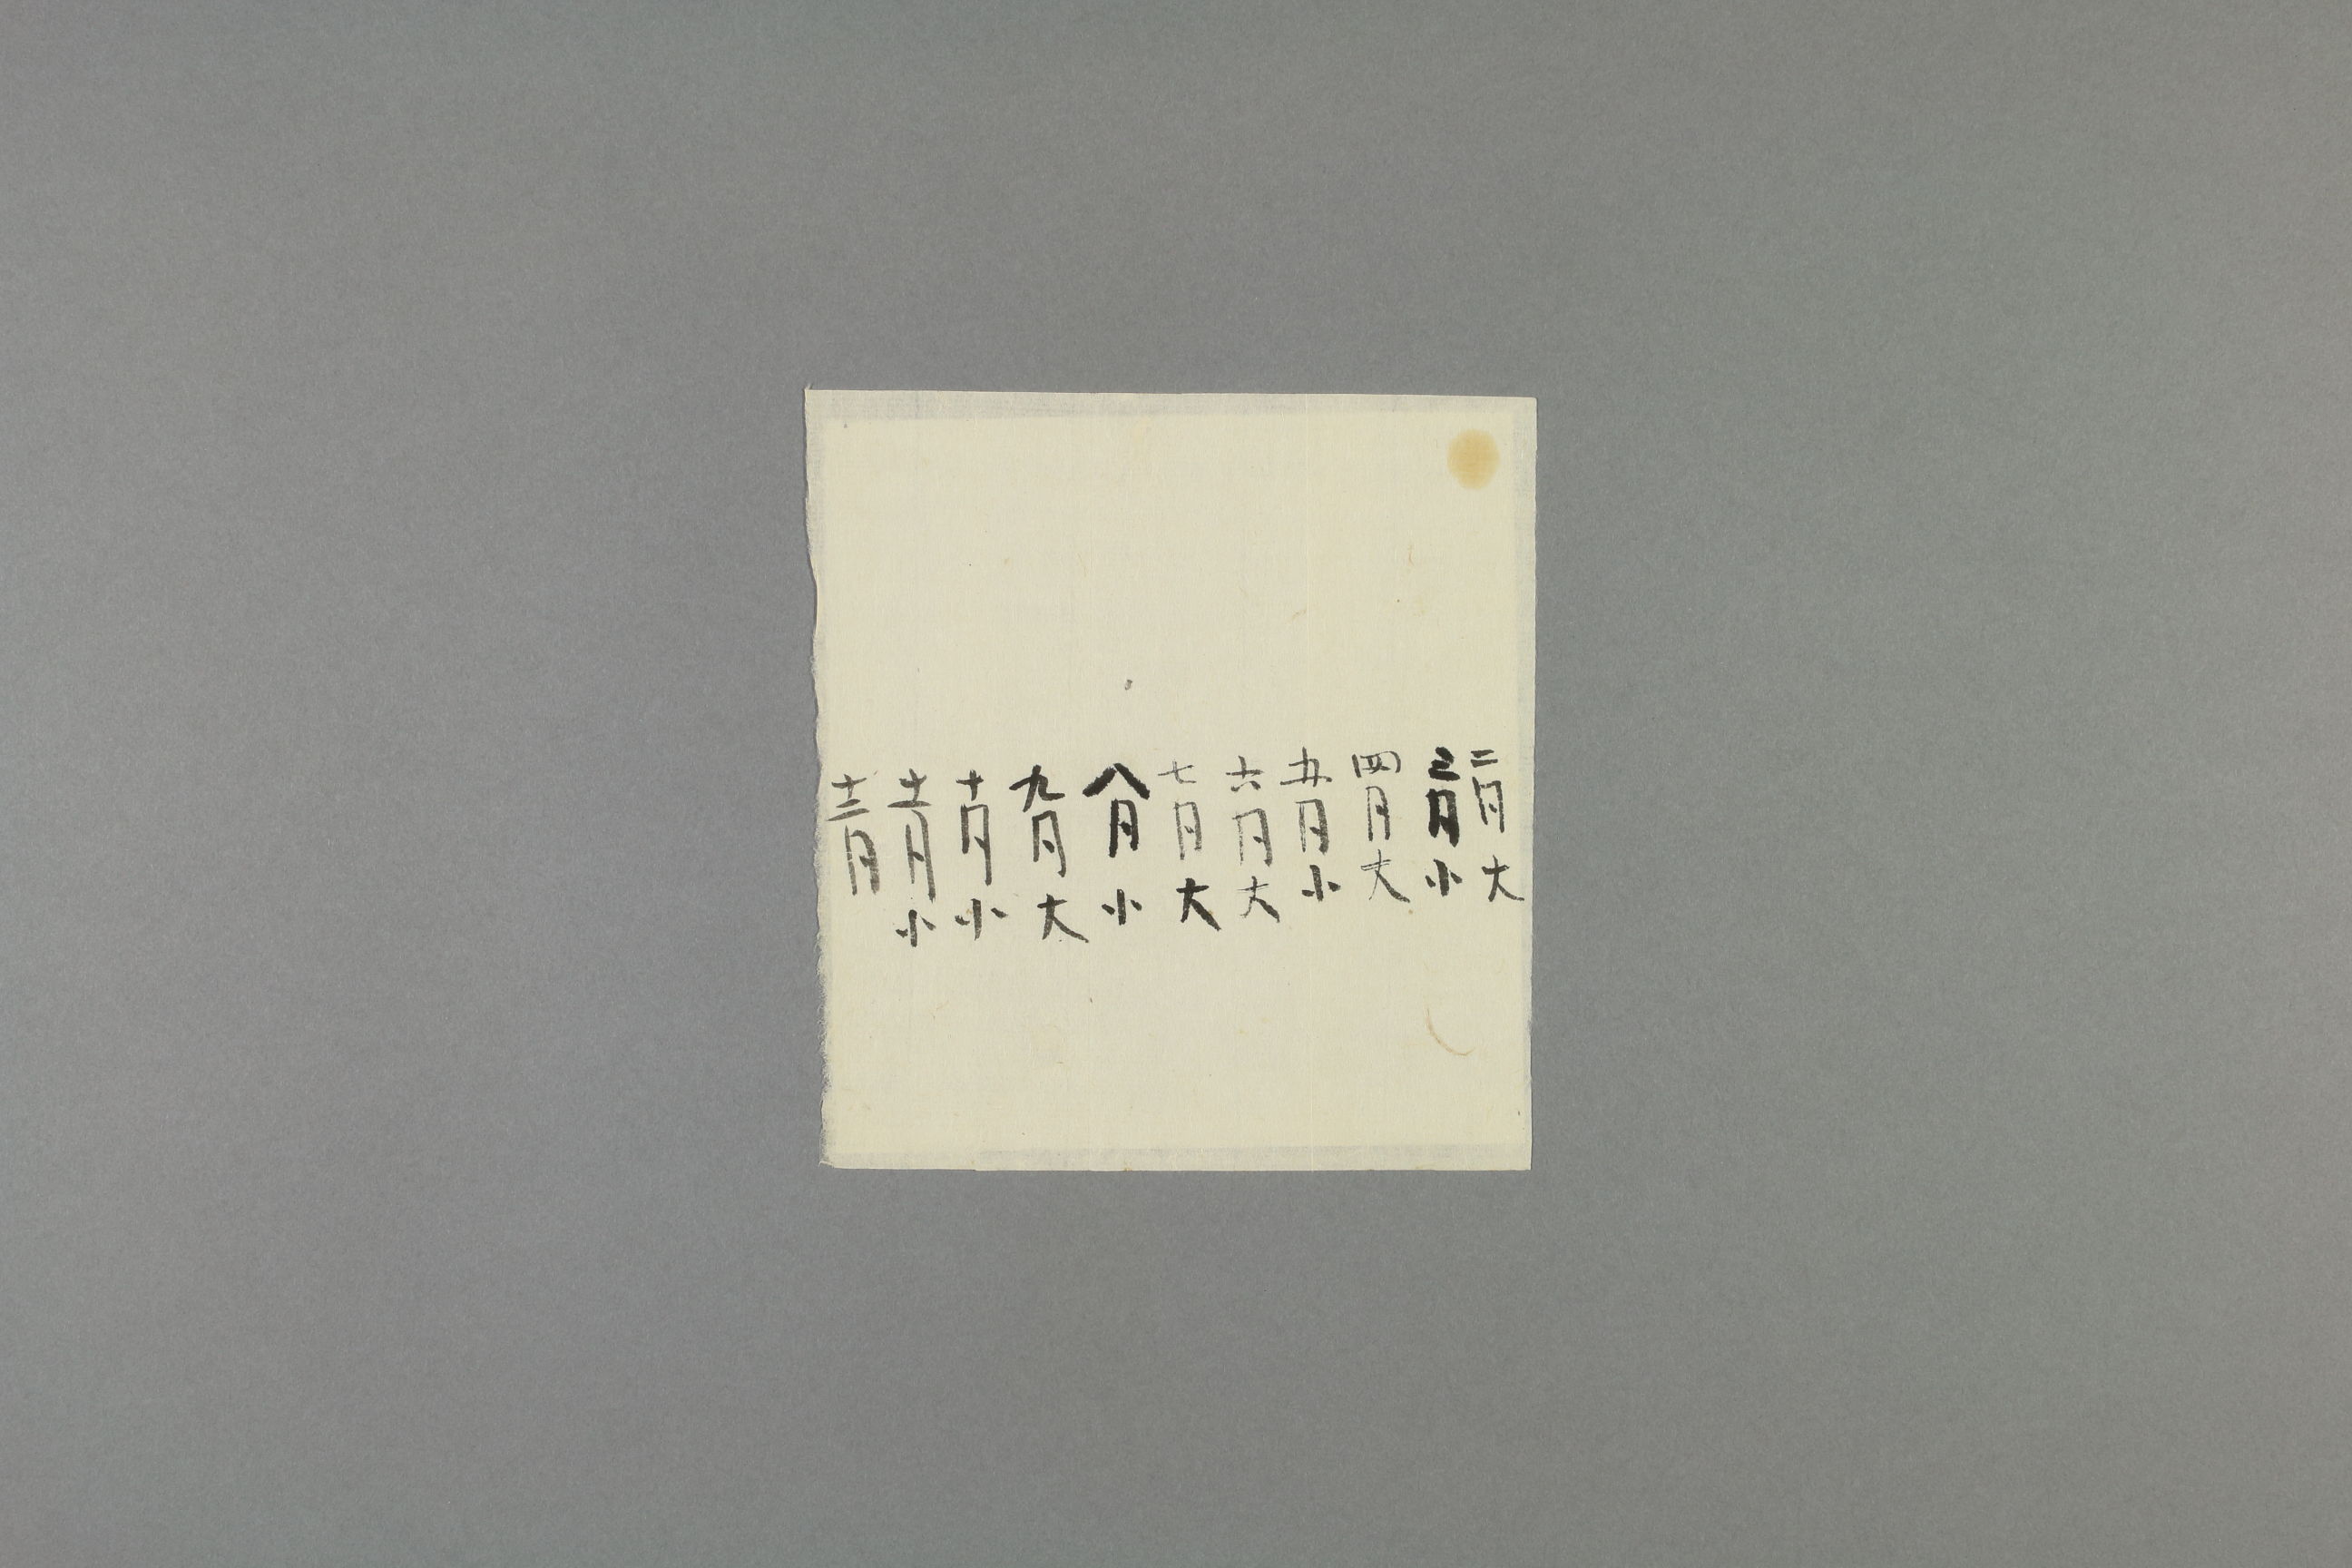 二月大
三月小
四月大
五月小
六月大
七月大
八月小
九月大
十月小
十一月小
十二月